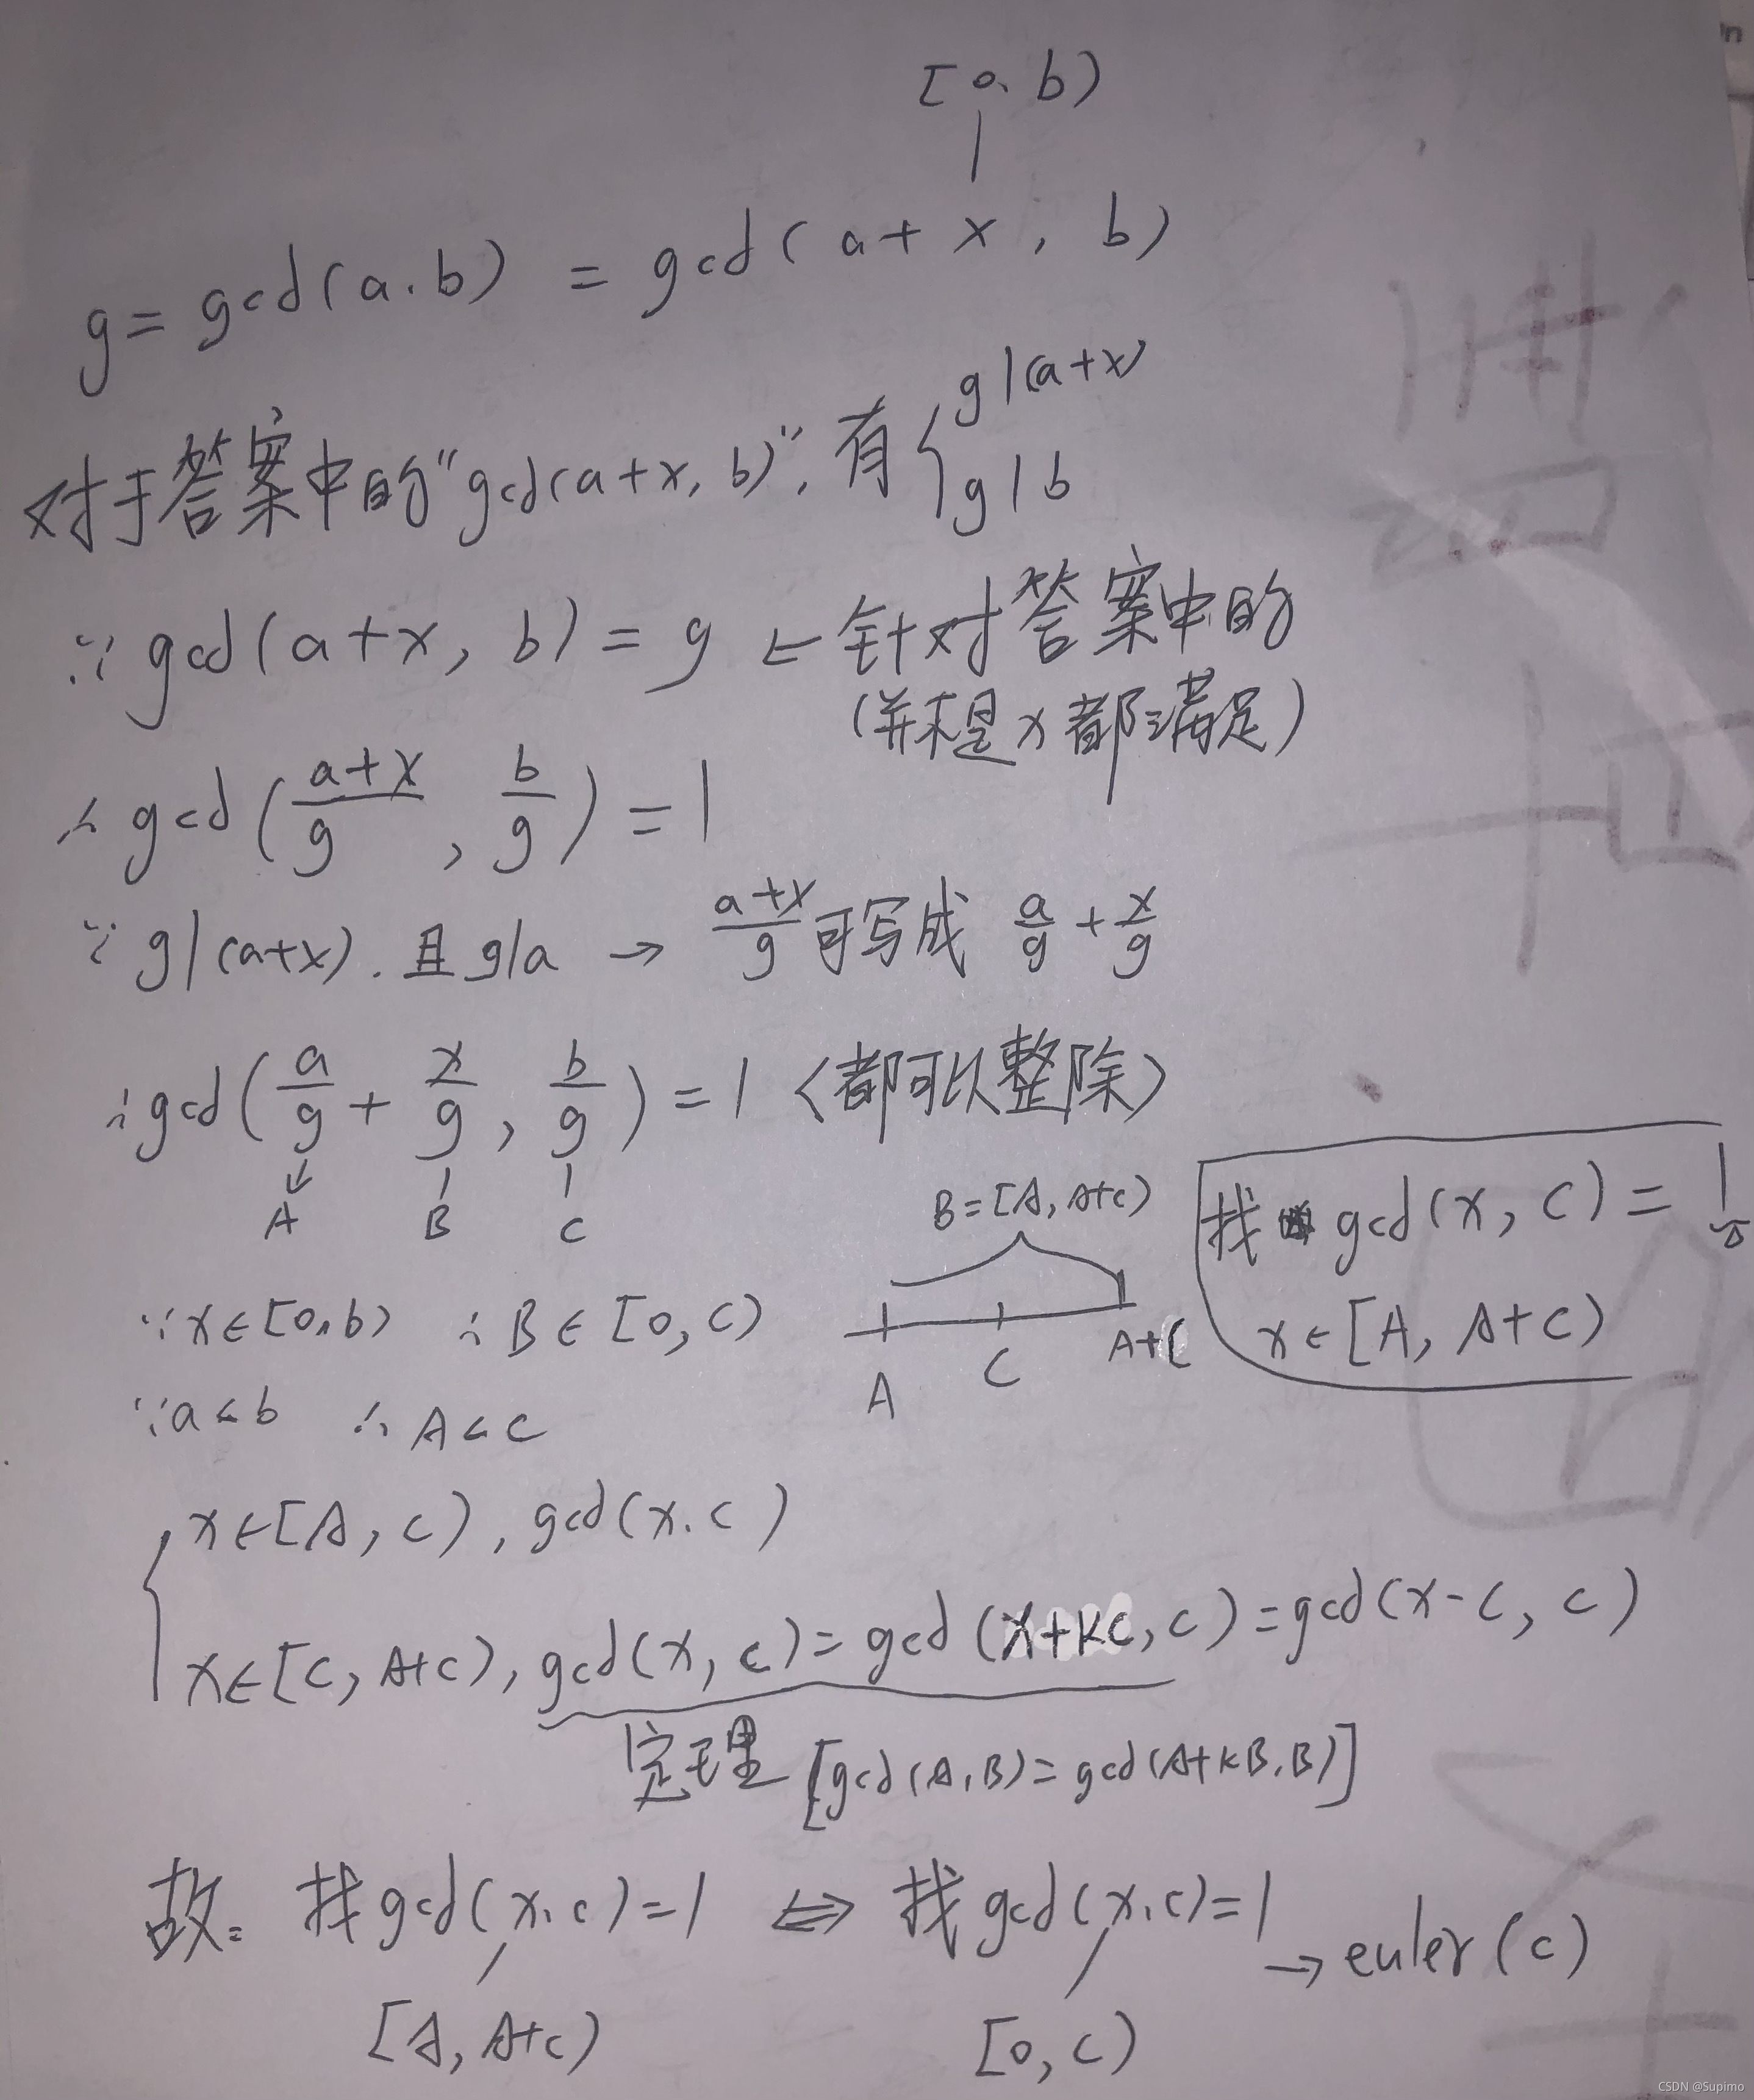 [0, b)
g = gcd(a, b) = gcd(a + x, b)
对于答案中的"gcd(a+x, b)", 有 { g|(a+x)
g|b
∵ gcd(a+x, b) = g ← 针对答案中的
(并不是x都满足)
∴ gcd(\frac{a+x}{g}, \frac{b}{g}) = 1
∵ g|(a+x). 且 g|a → \frac{a+x}{g} 可写成 \frac{a}{g} + \frac{x}{g}
∴ gcd(\frac{a}{g} + \frac{x}{g}, \frac{b}{g}) = 1 〈都可以整除〉
A B C
B=[A, A+C)
找 gcd(x, C) = 1
x ∈ [A, A+C)
∵ x∈[0, b) ∴ B ∈ [0, C)
A C A+C
∵ a < b ∴ A < C
{ x∈[A, C), gcd(x, C)
x∈[C, A+C), gcd(x, C) = gcd(x+KC, C) = gcd(x-C, C)
定理 [gcd(A, B) = gcd(A+KB, B)]
故: 找gcd(x, c)=1 ⇔ 找gcd(x, c)=1 → euler(c)
[A, A+C) [0, C)
CSDN @Supimo